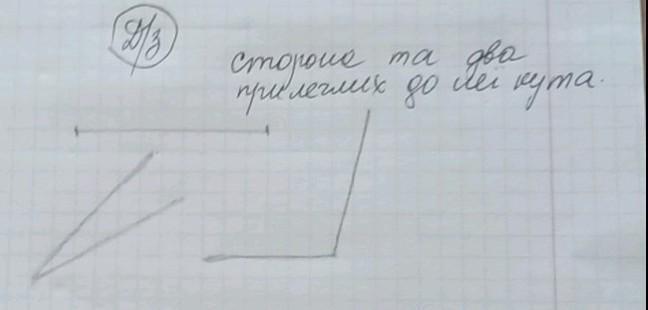 Д/з
сторона та два
прилеглих до неї кута.